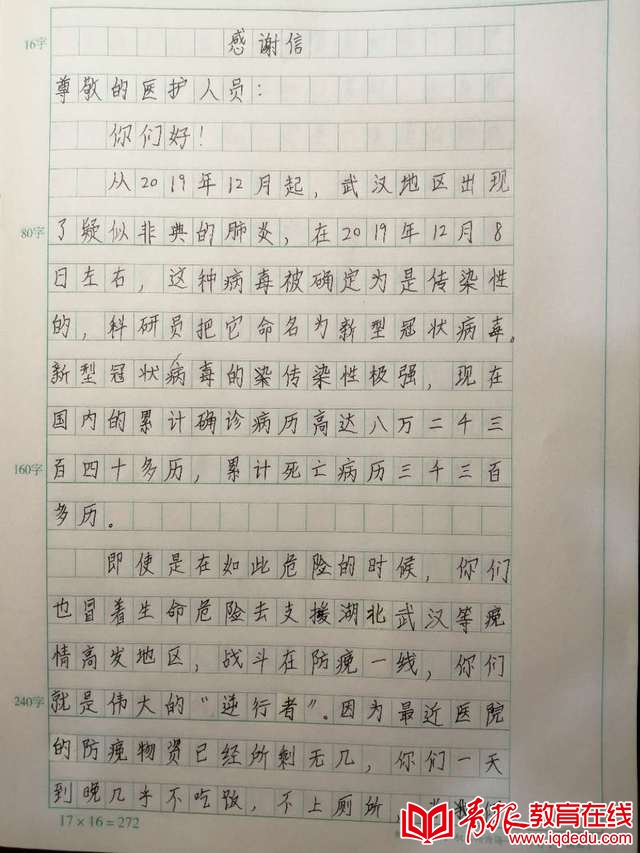 16字
感谢信
尊敬的医护人员：
你们好！
从2019年12月起，武汉地区出现
80字
了疑似非典的肺炎，在2019年12月8
日左右，这种病毒被确定为是传染性
的，科研员把它命名为新型冠状病毒。
新型冠状病毒的染传染性极强，现在
国内的累计确诊病历高达八万二千三
160字
百四十多历，累计死亡病历三千三百
多历。
即使是在如此危险的时候，你们
也冒着生命危险去支援湖北武汉等疫
情高发地区，战斗在防疫一线，你们
240字
就是伟大的“逆行者”。因为最近医院
的防疫物资已经所剩无几，你们一天
到晚几乎不吃饭，不上厕所，
17×16=272
青报教育在线
www.iqdedu.com